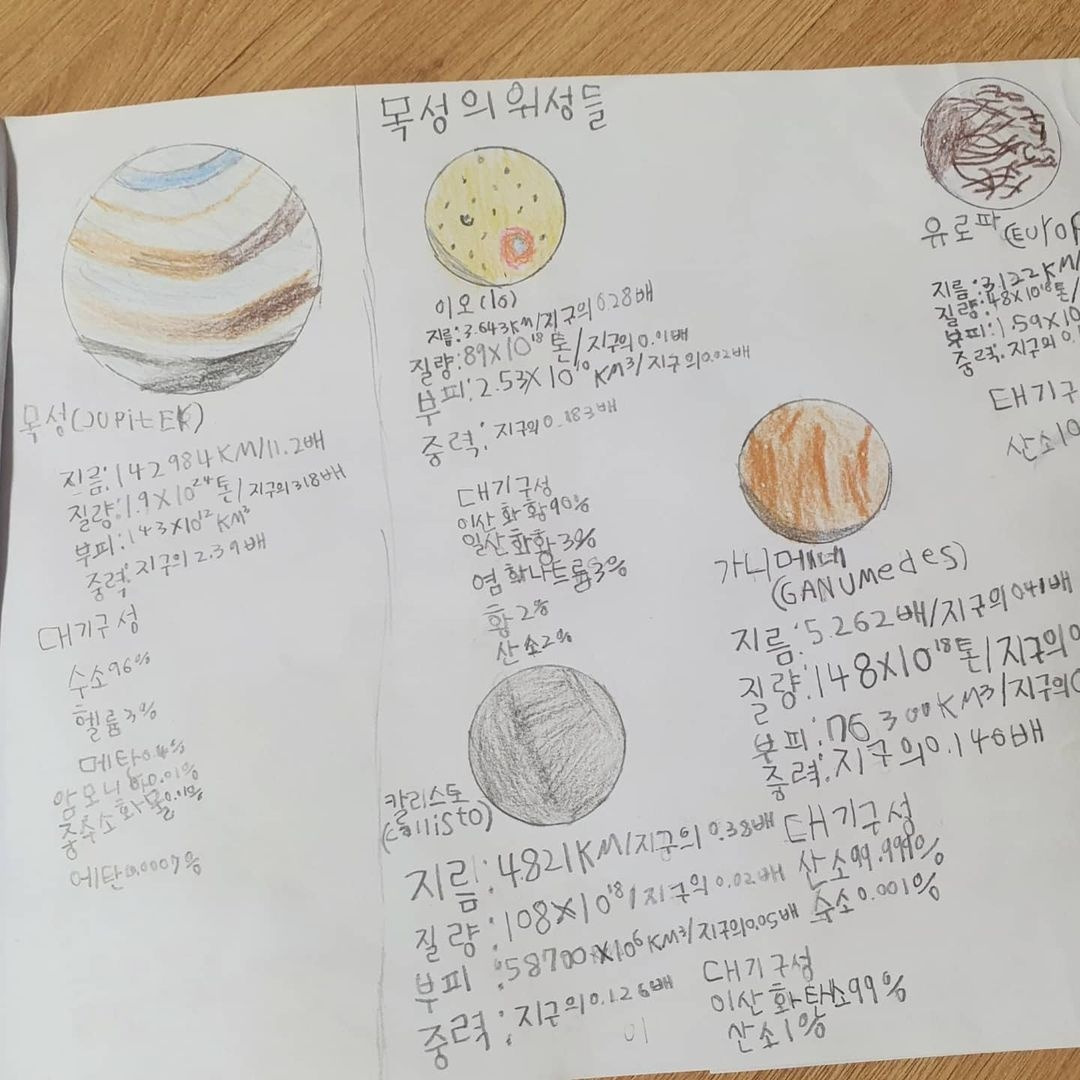 목성(JUPitER)
지름:142984KM/11.2배
질량:1.9X10²⁴톤/지구의318배
부피:143X10¹² KM³
중력:지구의2.39배
대기구성
수소96%
헬륨3%
메탄0.4%
암모니아0.01%
중수소화물0.01%
에탄0.0007%
목성의위성들
이오(Io)
지름:3.643KM/지구의0.28배
질량:89X10¹⁸톤/지구의0.01배
부피:2.53X10¹⁰KM³/지구의0.02배
중력:지구의0.183배
대기구성
이산화황90%
일산화황3%
염화나트륨3%
황2%
산소2%
유로파(EUroP
지름:3.122KM/
질량:48X10¹⁸톤/
부피:1.59X10
중력:지구의0.
대기구
산소10
가니메데
(GANUMedes)
지름:5.262배/지구의0.41배
질량:148X10¹⁸톤/지구의0
부피:76300KM³/지구의0
중력:지구의0.146배
대기구성
산소99.999%
수소0.001%
칼리스토
(callisto)
지름:4.821KM/지구의0.38배
질량:108X10¹⁸/지구의0.02배
부피:58700X10⁶KM³/지구의0.05배
중력:지구의0.126배
대기구성
이산화탄소99%
산소1%